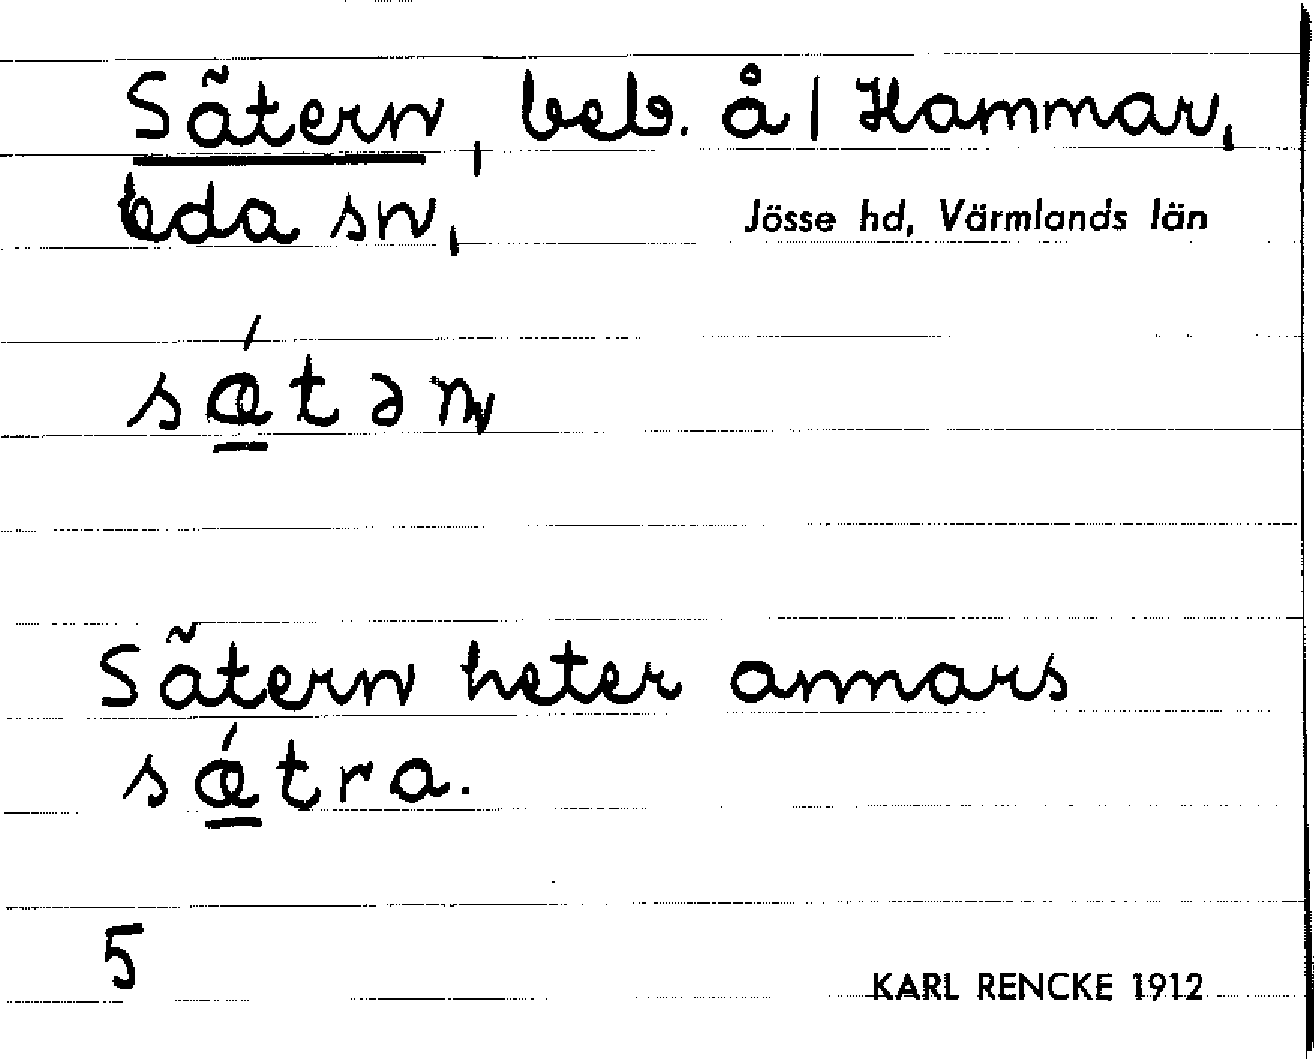 Sätern, beb. å/ Hammar,
Eda sn,
Jösse hd, Värmlands län
sǽtəɳ
Sätern heter annars
sǽtra.
5
KARL RENCKE 1912